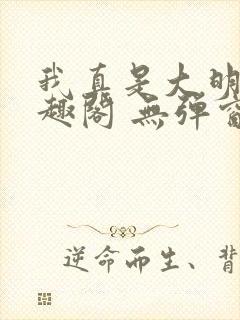 我真是大明
趣阁 無弹窗
逆命而生、背